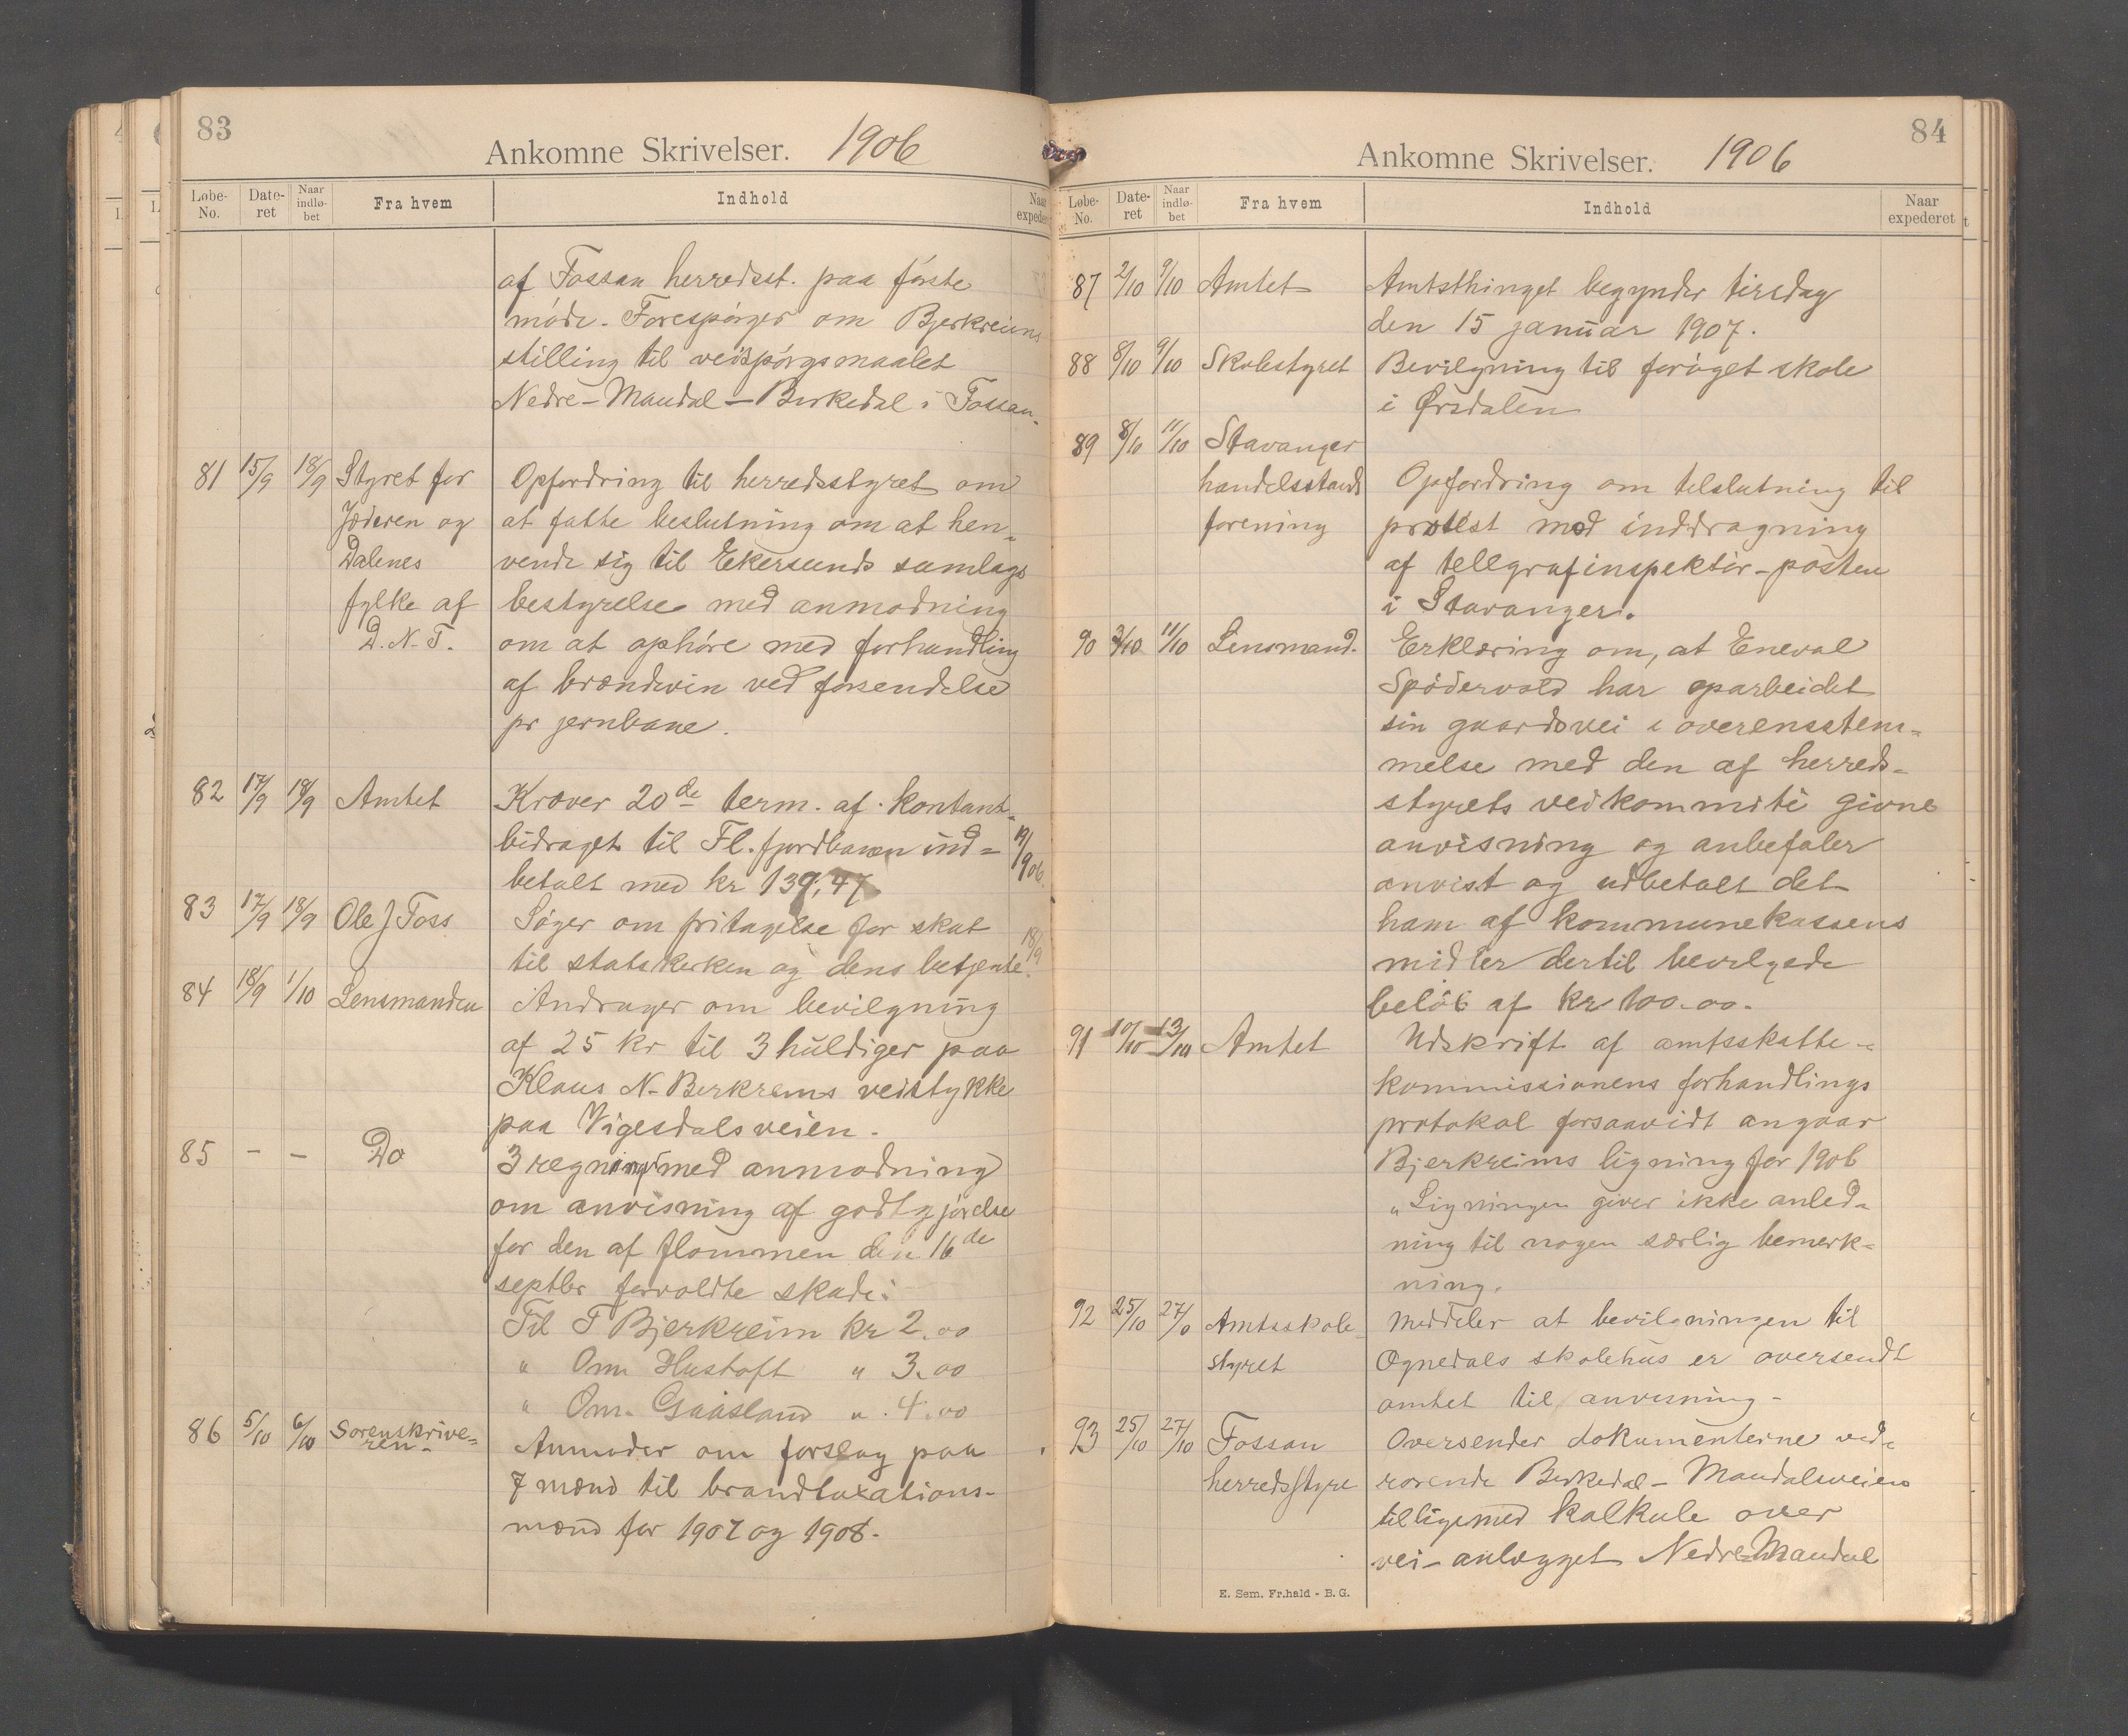 83
Ankomne Skrivelser. 1906
Løbe-No. Dateret Naar indløbet Fra hvem Indhold Naar expederet
af Fossan herredsst. paa første
møde. Forespørger om Bjerkreims
stilling til veispørgsmaalet
Nedre-Maudal-Birkedal i Fossan.
81 15/9 18/9 Styret for Opfordring til herredsstyret om
Jæderen og at fatte beslutning om at hen-
Dalenes vende sig til Ekersunds samlags
fylke af bestyrelse med anmodning
D.N.T. om at ophøre med forhandling
af brændevin ved forsendelse
pr jernbane.
82 17/9 18/9 Amtet Kræver 20de term. af kontant-
bidraget til Fl.fjordbanen ind= 19/9 06.
betalt med kr 139,47.
83 17/9 18/9 Ole J Foss Søger om fritagelse for skat 18/9
til statskirken og dens betjente.
84 18/9 1/10 Lensmanden Andrager om bevilgning
af 25 kr til 3 huldiger paa
Klaus N. Berkreims veistykke
paa Vigesdalsveien.
85 - - Do 3 regninger med anmodning
om anvisning af godtgjørelse
for den af flommen den 16de
septbr forvoldte skade:
Til T Bjerkreim kr 2.00
" Om Hustoft " 3.00
" Om. Gaasland ". 4.00
86 5/10 6/10 Sorenskrive=
ren. Anmoder om forslag paa
7 mænd til brandtaxations-
mænd for 1907 og 1908.
84
Ankomne Skrivelser. 1906
Løbe-No. Dateret Naar indløbet Fra hvem Indhold Naar expederet
87 2/10 9/10 Amtet Amtsthinget begynder tirsdag
den 15 januar 1907.
88 8/10 9/10 Skolestyret Bevilgning til forøget skole
i Ørsdalen
89 8/10 11/10 Stavanger
handelsstands Opfordring om tilslutning til
forening protest mod inddragning
af telegrafinspektør-posten
i Stavanger.
90 3/10 11/10 Lensmand. Erklæring om, at Eneval
Spødervold har oparbeidet
sin gaardsvei i overensstem-
melse med den af herreds-
styrets veikommité givne
anvisning og anbefaler
anvist og udbetalt det
ham af kommunekassens
midler dertil bevilgede
beløb af kr 100.00.
91 10/10 13/10 Amtet Udskrift af amtsskatte-
kommissionens forhandlings
protokol forsaavidt angaar
Bjerkreims ligning for 1906
"Ligningen giver ikke anled-
ning til nogen særlig bemerk-
ning.
92 25/10 27/10 Amtsskole- Meddeler at bevilgningen til
styret Ognedals skolehus er oversendt
amtet til anvisning-
93 25/10 27/10 Fossan Oversender dokumenterne ved-
herredsstyre rørende Birkedal-Maudalsveien
tilligemed kalkule over
vei-anlægget Nedre Maudal
E. Sem. Fr.hald - B. G.